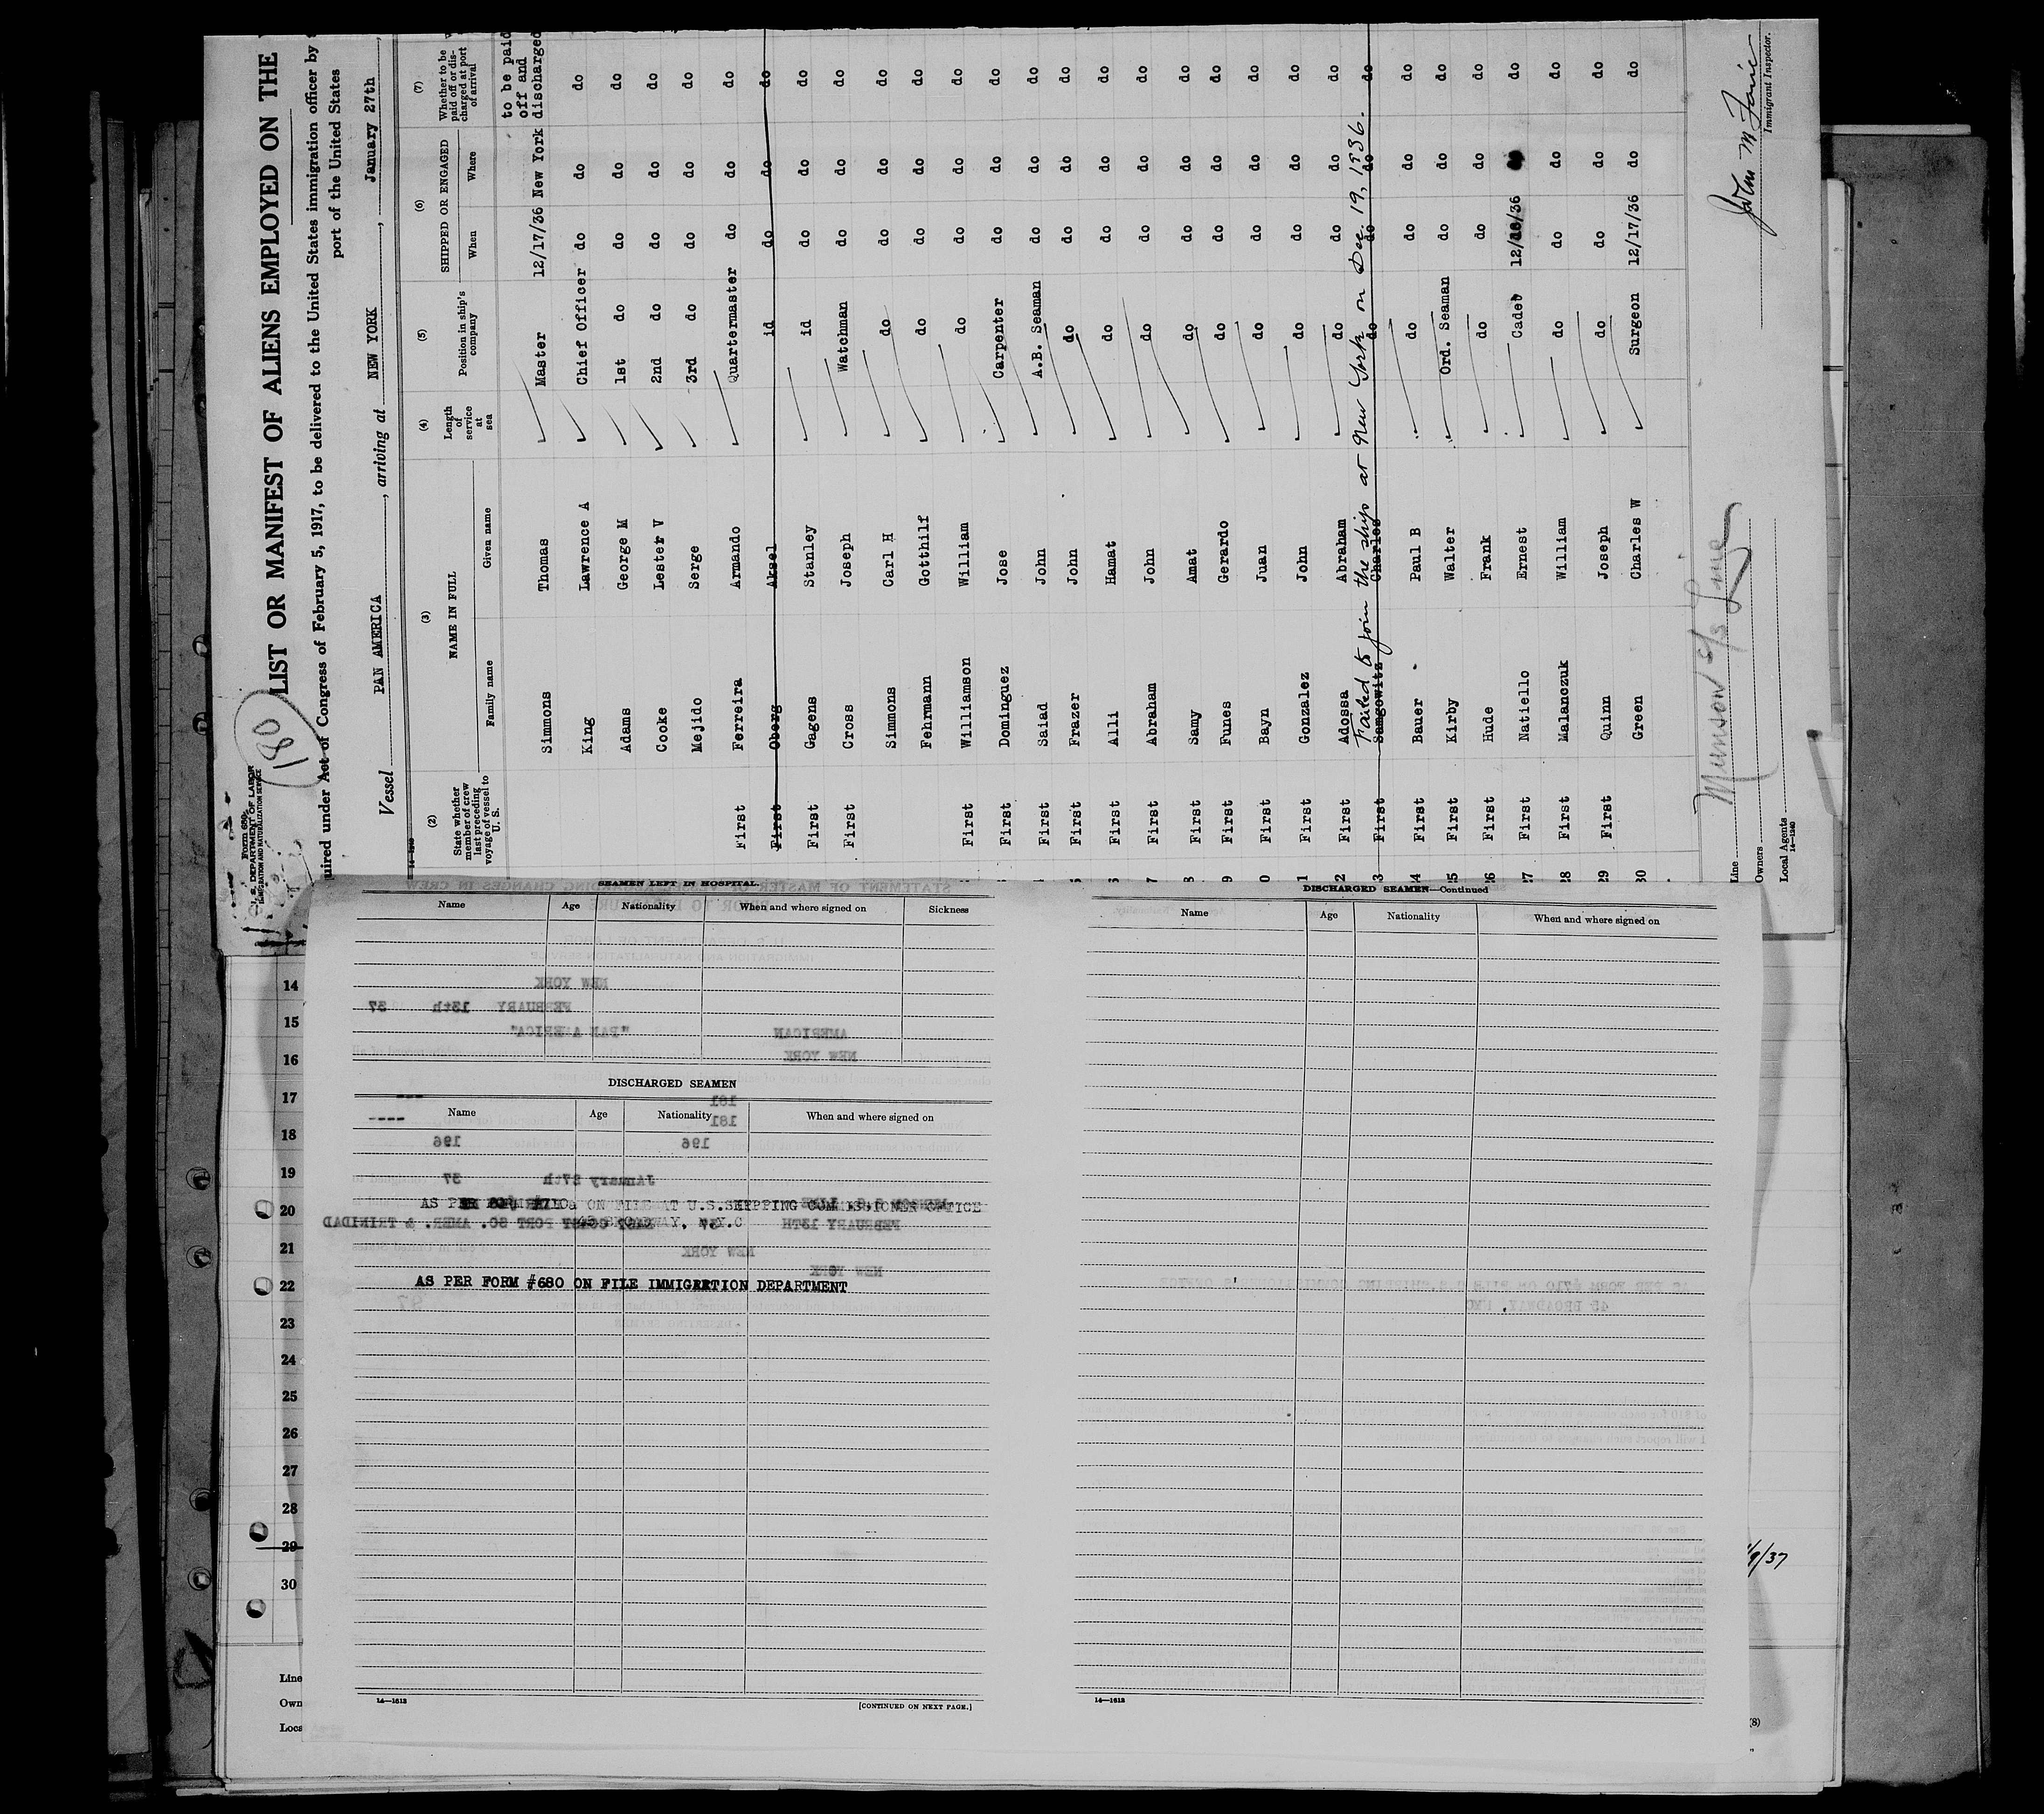 Form 680
U. S. DEPARTMENT OF LABOR
IMMIGRATION AND NATURALIZATION SERVICE
180
LIST OR MANIFEST OF ALIENS EMPLOYED ON THE
uired under Act of Congress of February 5, 1917, to be delivered to the United States immigration officer by
port of the United States
Vessel PAN AMERICA, arriving at NEW YORK, January 27th,
14-1240
(2) (3) (4) (5) (6) (7)
State whether member of crew last preceding voyage of vessel to U. S.
NAME IN FULL
Family name Given name
Length of service at sea
Position in ship's company
SHIPPED OR ENGAGED
When Where
Whether to be paid off or discharged at port of arrival
to be paid
off and
Simmons Thomas Master 12/17/36 New York discharged
King Lawrence A Chief Officer do do do
Adams George M 1st do do do do
Cooke Lester V 2nd do do do do
Mejido Serge 3rd do do do do
First Ferreira Armando Quartermaster do do do
First Oberg Aksel id do do do
First Gagens Stanley id do do do
First Cross Joseph Watchman do do do
Simmons Carl H do do do do
Fehrmann Gotthilf do do do do
First Williamson William do do do do
First Dominguez Jose Carpenter do do do
First Saiad John A.B. Seaman do do do
5 First Frazer John do do do do
6 First Alli Hamat do do do do
7 First Abraham John do do do do
8 First Samy Amat do do do do
9 First Funes Gerardo do do do do
0 First Bayn Juan do do do do
1 First Gonzalez John do do do do
2 First Adossa Abraham do do do do
Failed to join the ship at New York on Dec. 19, 1936.
3 First Samgowitz Charles do do do do
24 First Bauer Paul B do do do do
25 First Kirby Walter Ord. Seaman do do do
26 First Hude Frank do do do do
27 First Natiello Ernest Cadet 12/18/36 do do
28 First Malanczuk William do do do do
29 First Quinn Joseph do do do do
30 Green Charles W Surgeon 12/17/36 do do
Munson S/S Line
Line
Owners
Local Agents
14-1240
John M
Immigrant Inspector.
SEAMEN LEFT IN HOSPITAL
Name Age Nationality When and where signed on Sickness
NEW YORK
FEBRUARY 13th 37
"PAN AMERICA" AMERICAN
NEW YORK
DISCHARGED SEAMEN
Name Age Nationality When and where signed on
181
181
196 196
January 27th 37
AS PER FORM #710a ON FILE AT U.S.SHIPPING COMMISSIONER OFFICE
45 BROADWAY, N.Y.C
FEBRUARY 13TH 37 EAST COAST PORT SO. AMER. & TRINIDAD
NEW YORK
NEW YORK
AS PER FORM #680 ON FILE IMMIGRATION DEPARTMENT
14—1613 [CONTINUED ON NEXT PAGE.]
DISCHARGED SEAMEN—Continued
Name Age Nationality When and where signed on
14—1613
14
15
16
17
18
19
20
21
22
23
24
25
26
27
28
29
30
Line
Own
Loca
/9/37
(8)